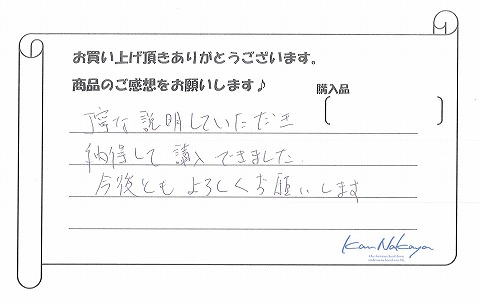 お買い上げ頂きありがとうございます。
商品のご感想をお願いします♪
購入品
丁寧な説明していただき
納得して購入できました。
今後ともよろしくお願いします
Kan Nakaya